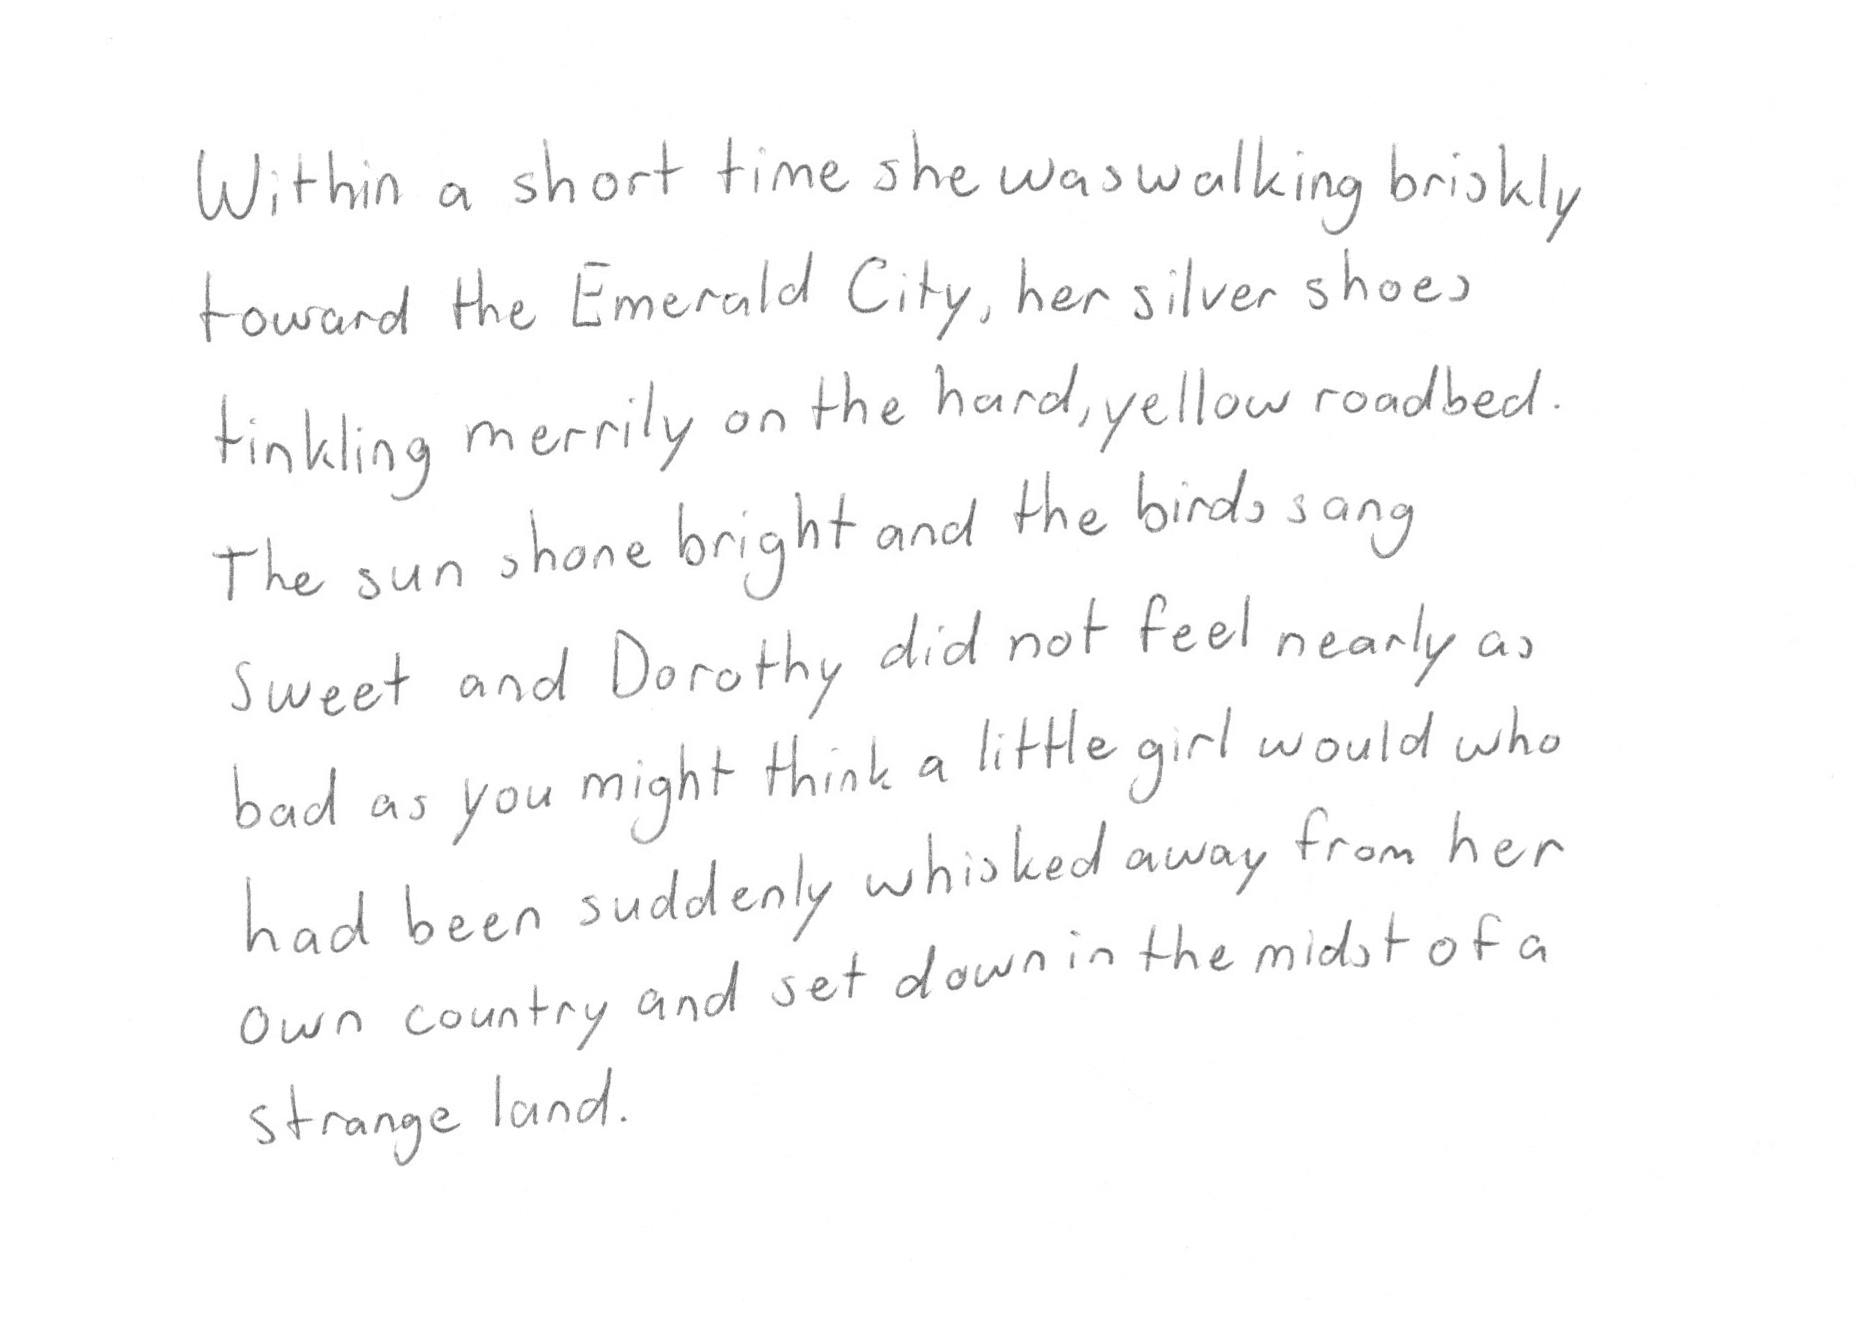 Within a short time she was walking briskly
toward the Emerald City, her silver shoes
tinkling merrily on the hard, yellow roadbed.
The sun shone bright and the birds sang
sweet and Dorothy did not feel nearly as
bad as you might think a little girl would who
had been suddenly whisked away from her
own country and set down in the midst of a
strange land.